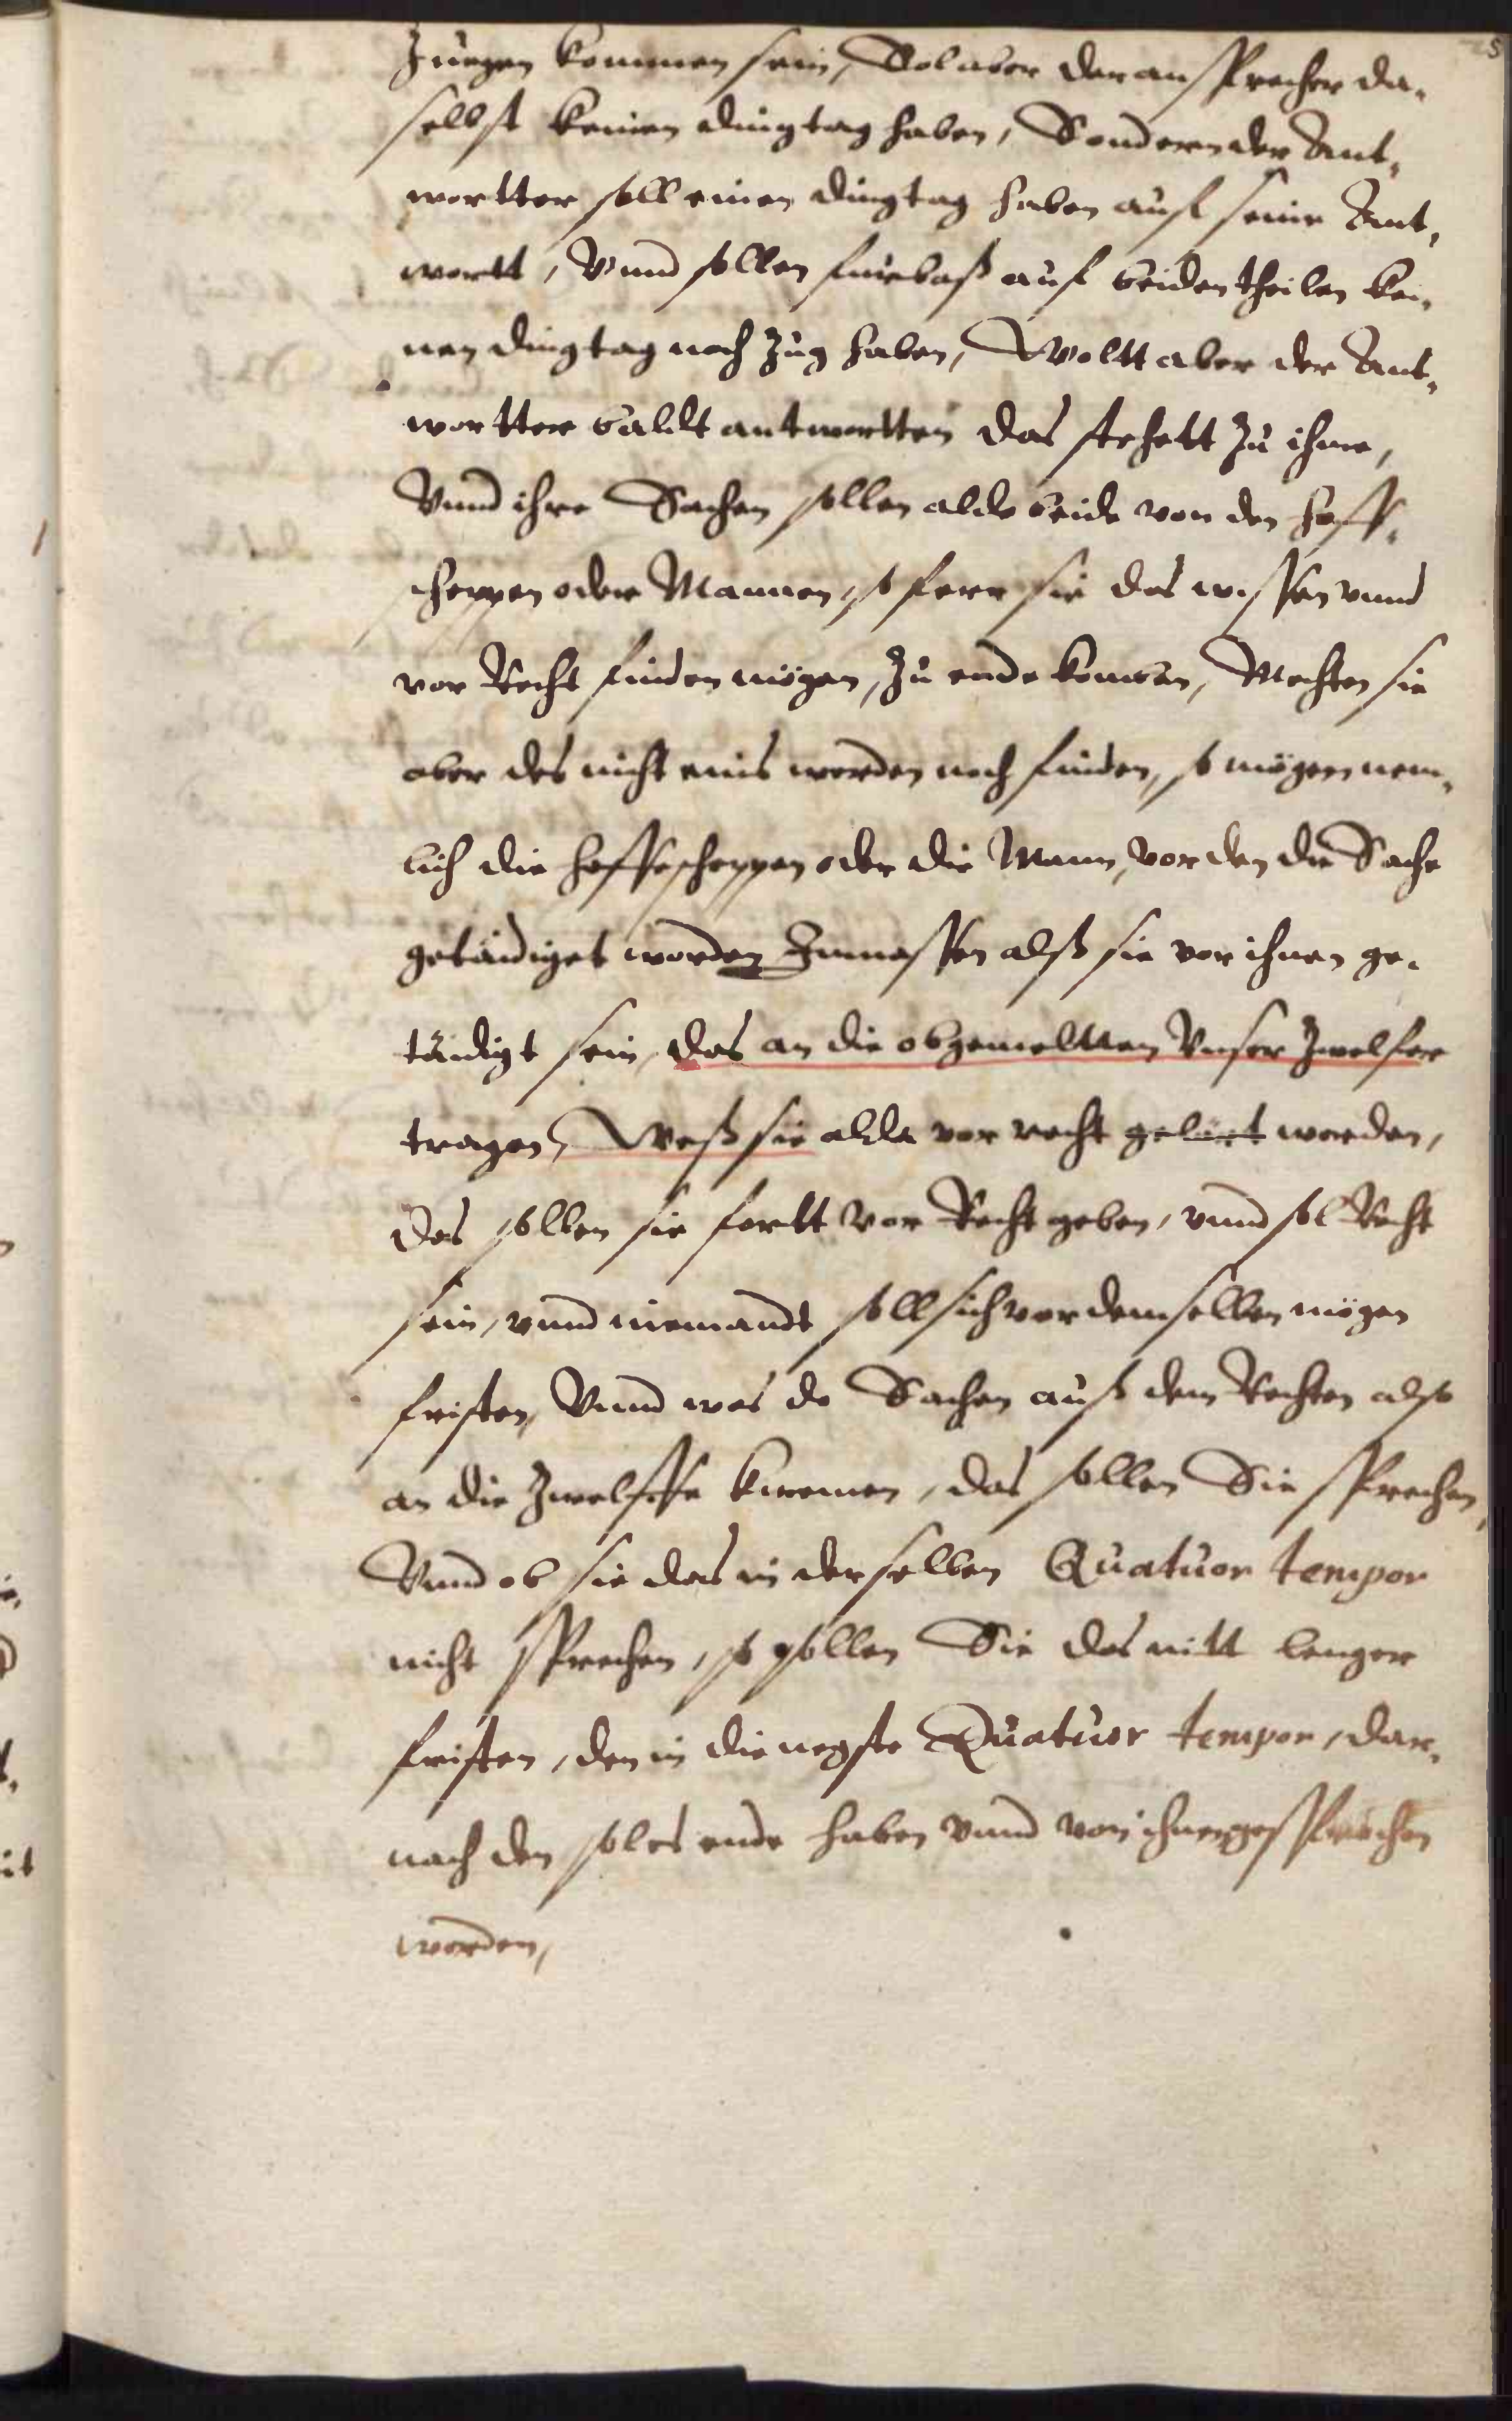 Zuegen kommen sein, Sol aber der ansprecher da,
selbst keinen dingtag haben, Sondern der Ant,
wortter soll einen dingtag haben auf seine Ant,
wortt, Vnnd sollen fuerbaß auf beiden theilen kei,
nen dingtag noch Zug haben, Woltt aber der Ant,
wortter baldt antwortten das stehett zu ihme,
Vnnd ihre Sachen sollen aldo beide von den hoff,
scheppen oder Mannen, so fern sie das wissen vnnd
vor Recht finden mögen, zu ende komen, Mochten sie
aber des nicht eins werden noch finden, so mögen nem,
lich die hoffescheppen oder die Mann, vor den die Sache
getädiget worden Inmassen alß sie vor ihnen ge,
tädigt sein, das an die obgemeltten Vnser Zwelfer
tragen, Weß sie alda vor recht gelärt werden,
Das sollen sie fortt vor Recht geben, vnnd sol Recht
sein, vnnd niemandt soll sich vor demselben mögen
fristen, Vnnd was do Sachen auß dem Rechten also
an die Zwelffe kwemen, das sollen Sie sprechen,
Vnnd ob sie das in derselben Quatuor tempor
nicht sprechen, so sollen Sie das nitt lenger
fristen, den in die negste Quatuor tempor, dar,
nach den sol es ende haben vnnd von ihnen gesprochen
werden,